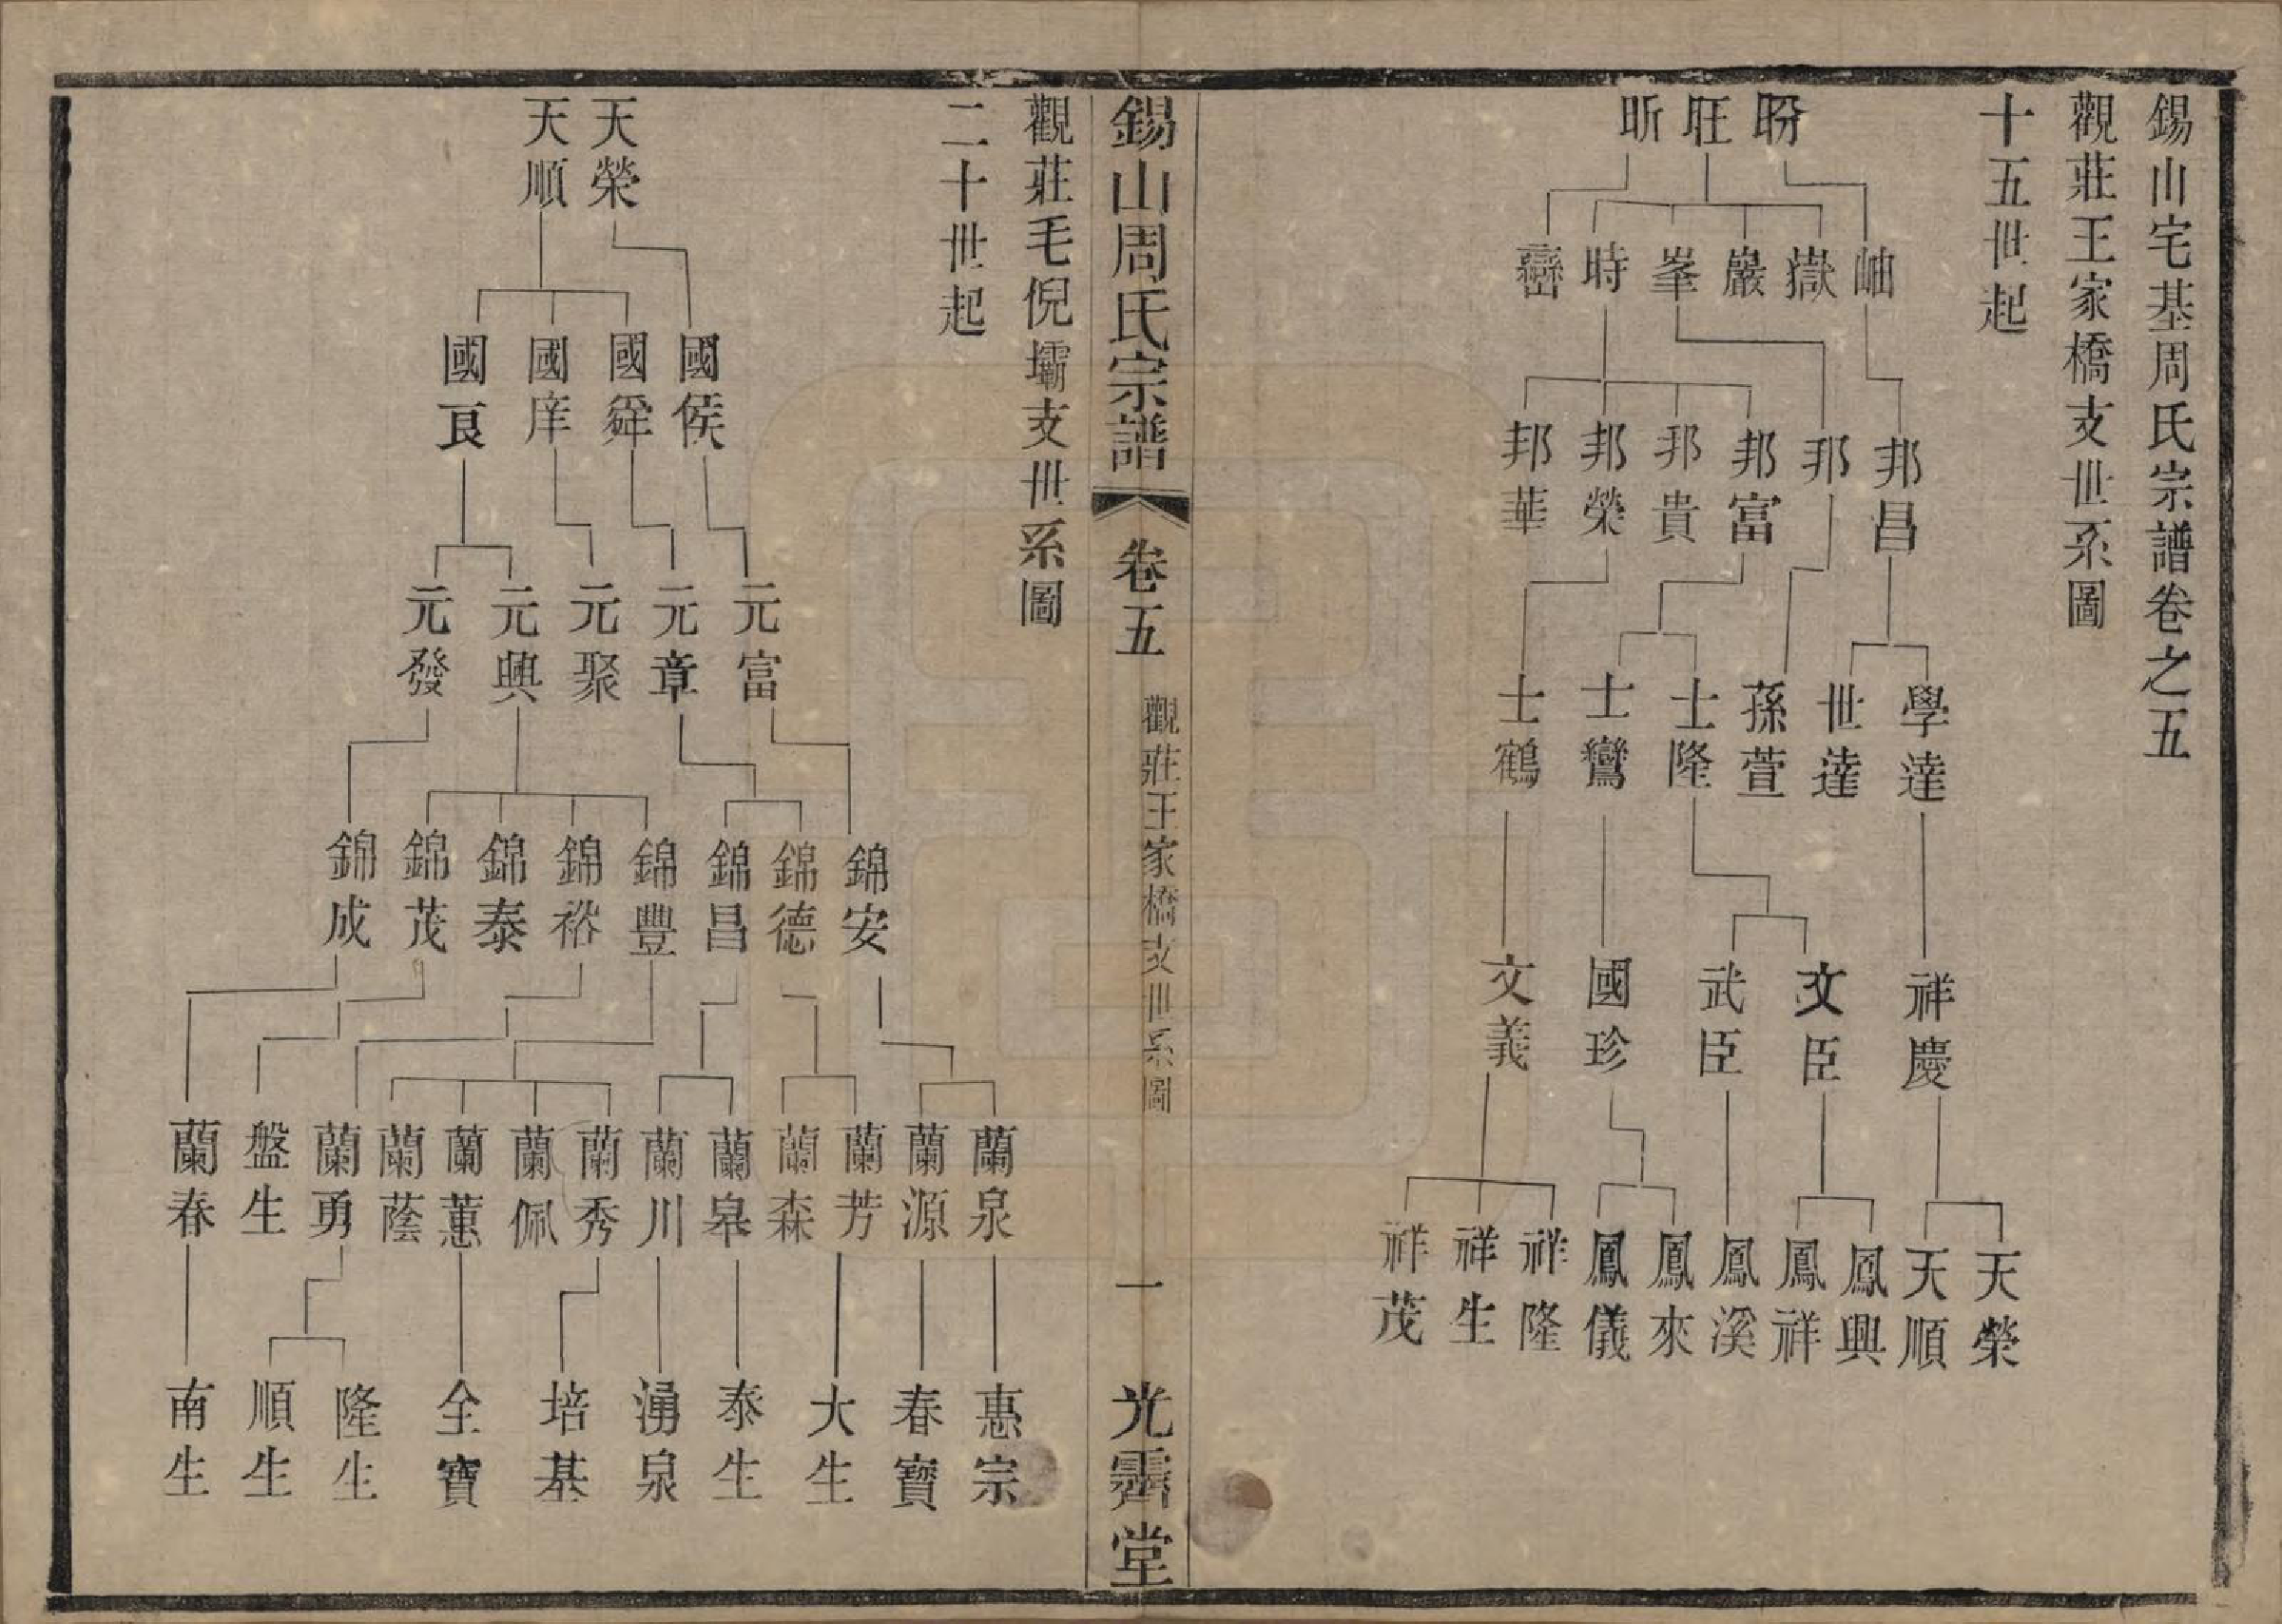 錫山宅基周氏宗譜卷之五
觀莊王家橋支世系圖
十五世起
昐 旺 昕
岫 嶽 巖 峯 時 巒
邦昌 邦 邦富 邦貴 邦榮 邦華
學達 世達 蓀萱 士隆 士鸞 士鶴
祥慶 文臣 武臣 國珍 文義
天榮 天順 鳳興 鳳祥 鳳溪 鳳來 鳳儀 祥隆 祥生 祥茂
錫山周氏宗譜 卷五 觀莊王家橋支世系圖 一 光霽堂
觀莊毛倪壩支世系圖
二十世起
天榮 天順
國侯 國舜 國庠 國良
元富 元章 元聚 元興 元發
錦安 錦德 錦昌 錦豐 錦裕 錦泰 錦茂 錦成
蘭泉 蘭源 蘭芳 蘭森 蘭皋 蘭川 蘭秀 蘭佩 蘭蕙 蘭蔭 蘭勇 盤生 蘭春
惠宗 春寶 大生 泰生 湧泉 培基 全寶 隆生 順生 南生